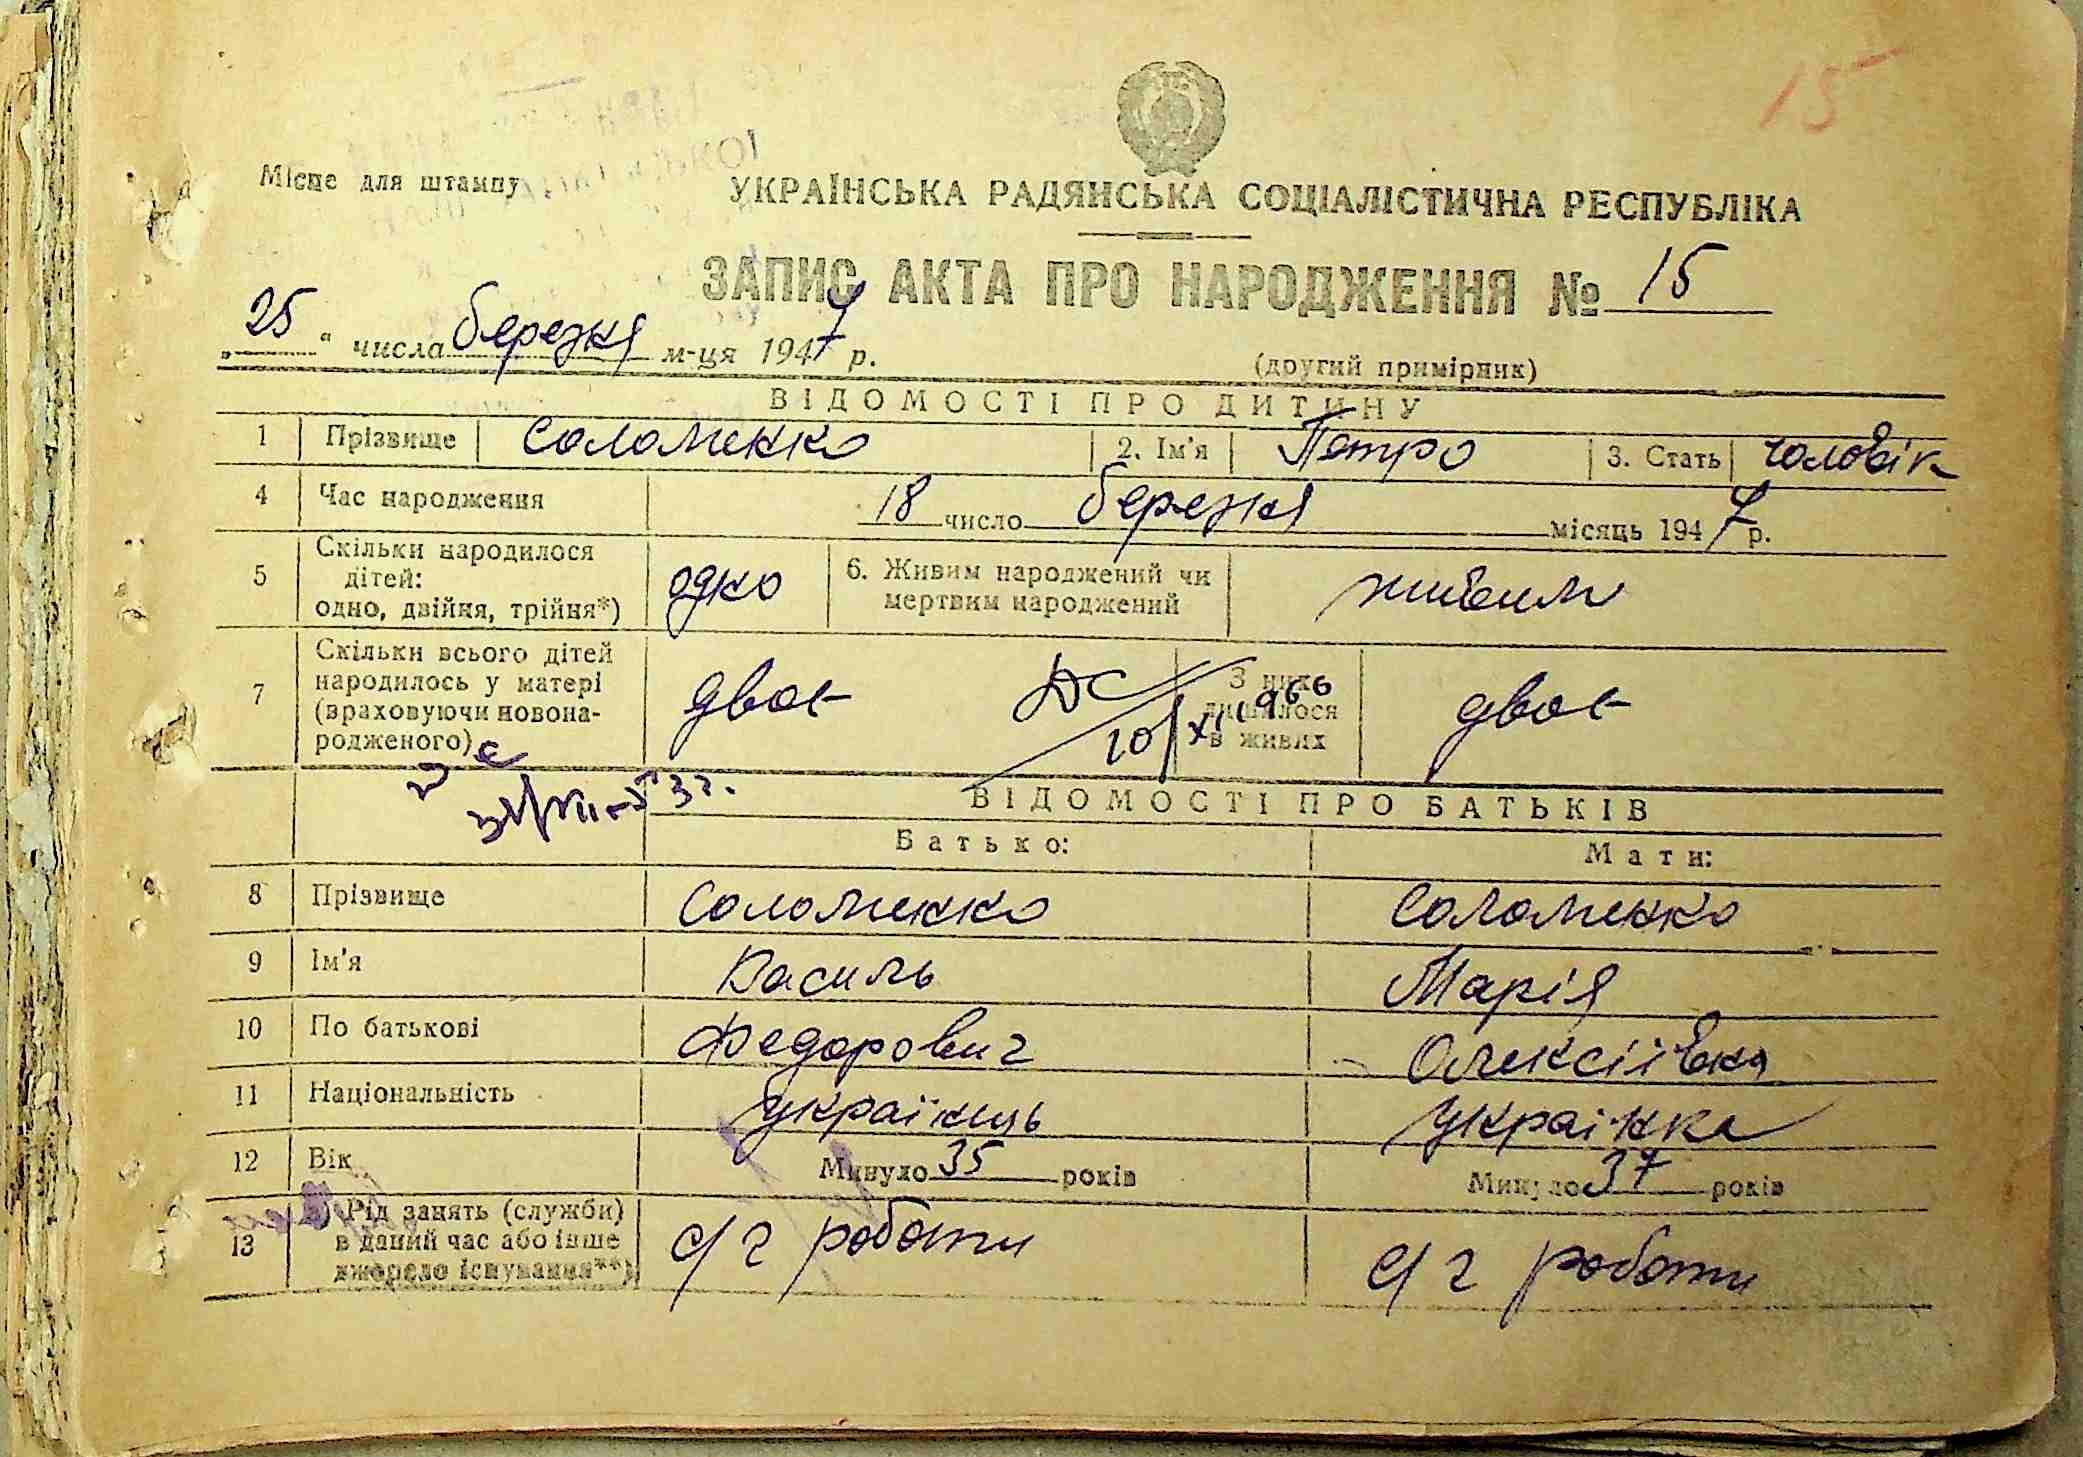 15
Місце для штампу
УКРАЇНСЬКА РАДЯНСЬКА СОЦІАЛІСТИЧНА РЕСПУБЛІКА
ЗАПИС АКТА ПРО НАРОДЖЕННЯ № 15
„25“ числа березня м-ця 1947 р.
(другий примірник)
ВІДОМОСТІ ПРО ДИТИНУ
1 Прізвище Соломенко 2. Ім'я Петро 3. Стать чоловік
4 Час народження 18 число березня місяць 1947 р.
5 Скільки народилося дітей: одно, двійня, трійня*) одно 6. Живим народжений чи мертвим народжений живим
7 Скільки всього дітей народилось у матері (враховуючи новонародженого) двоє З них лишилося в живих двоє
ДС
10/XI 1966
53 г.
ВІДОМОСТІ ПРО БАТЬКІВ
Батько: Мати:
8 Прізвище Соломенко Соломенко
9 Ім'я Василь Марія
10 По батькові Федорович Олексіївна
11 Національність українць українка
12 Вік Минуло 35 років Минуло 37 років
13 Рід занять (служби) в даний час або інше джерело існування**) с/г роботи с/г роботи